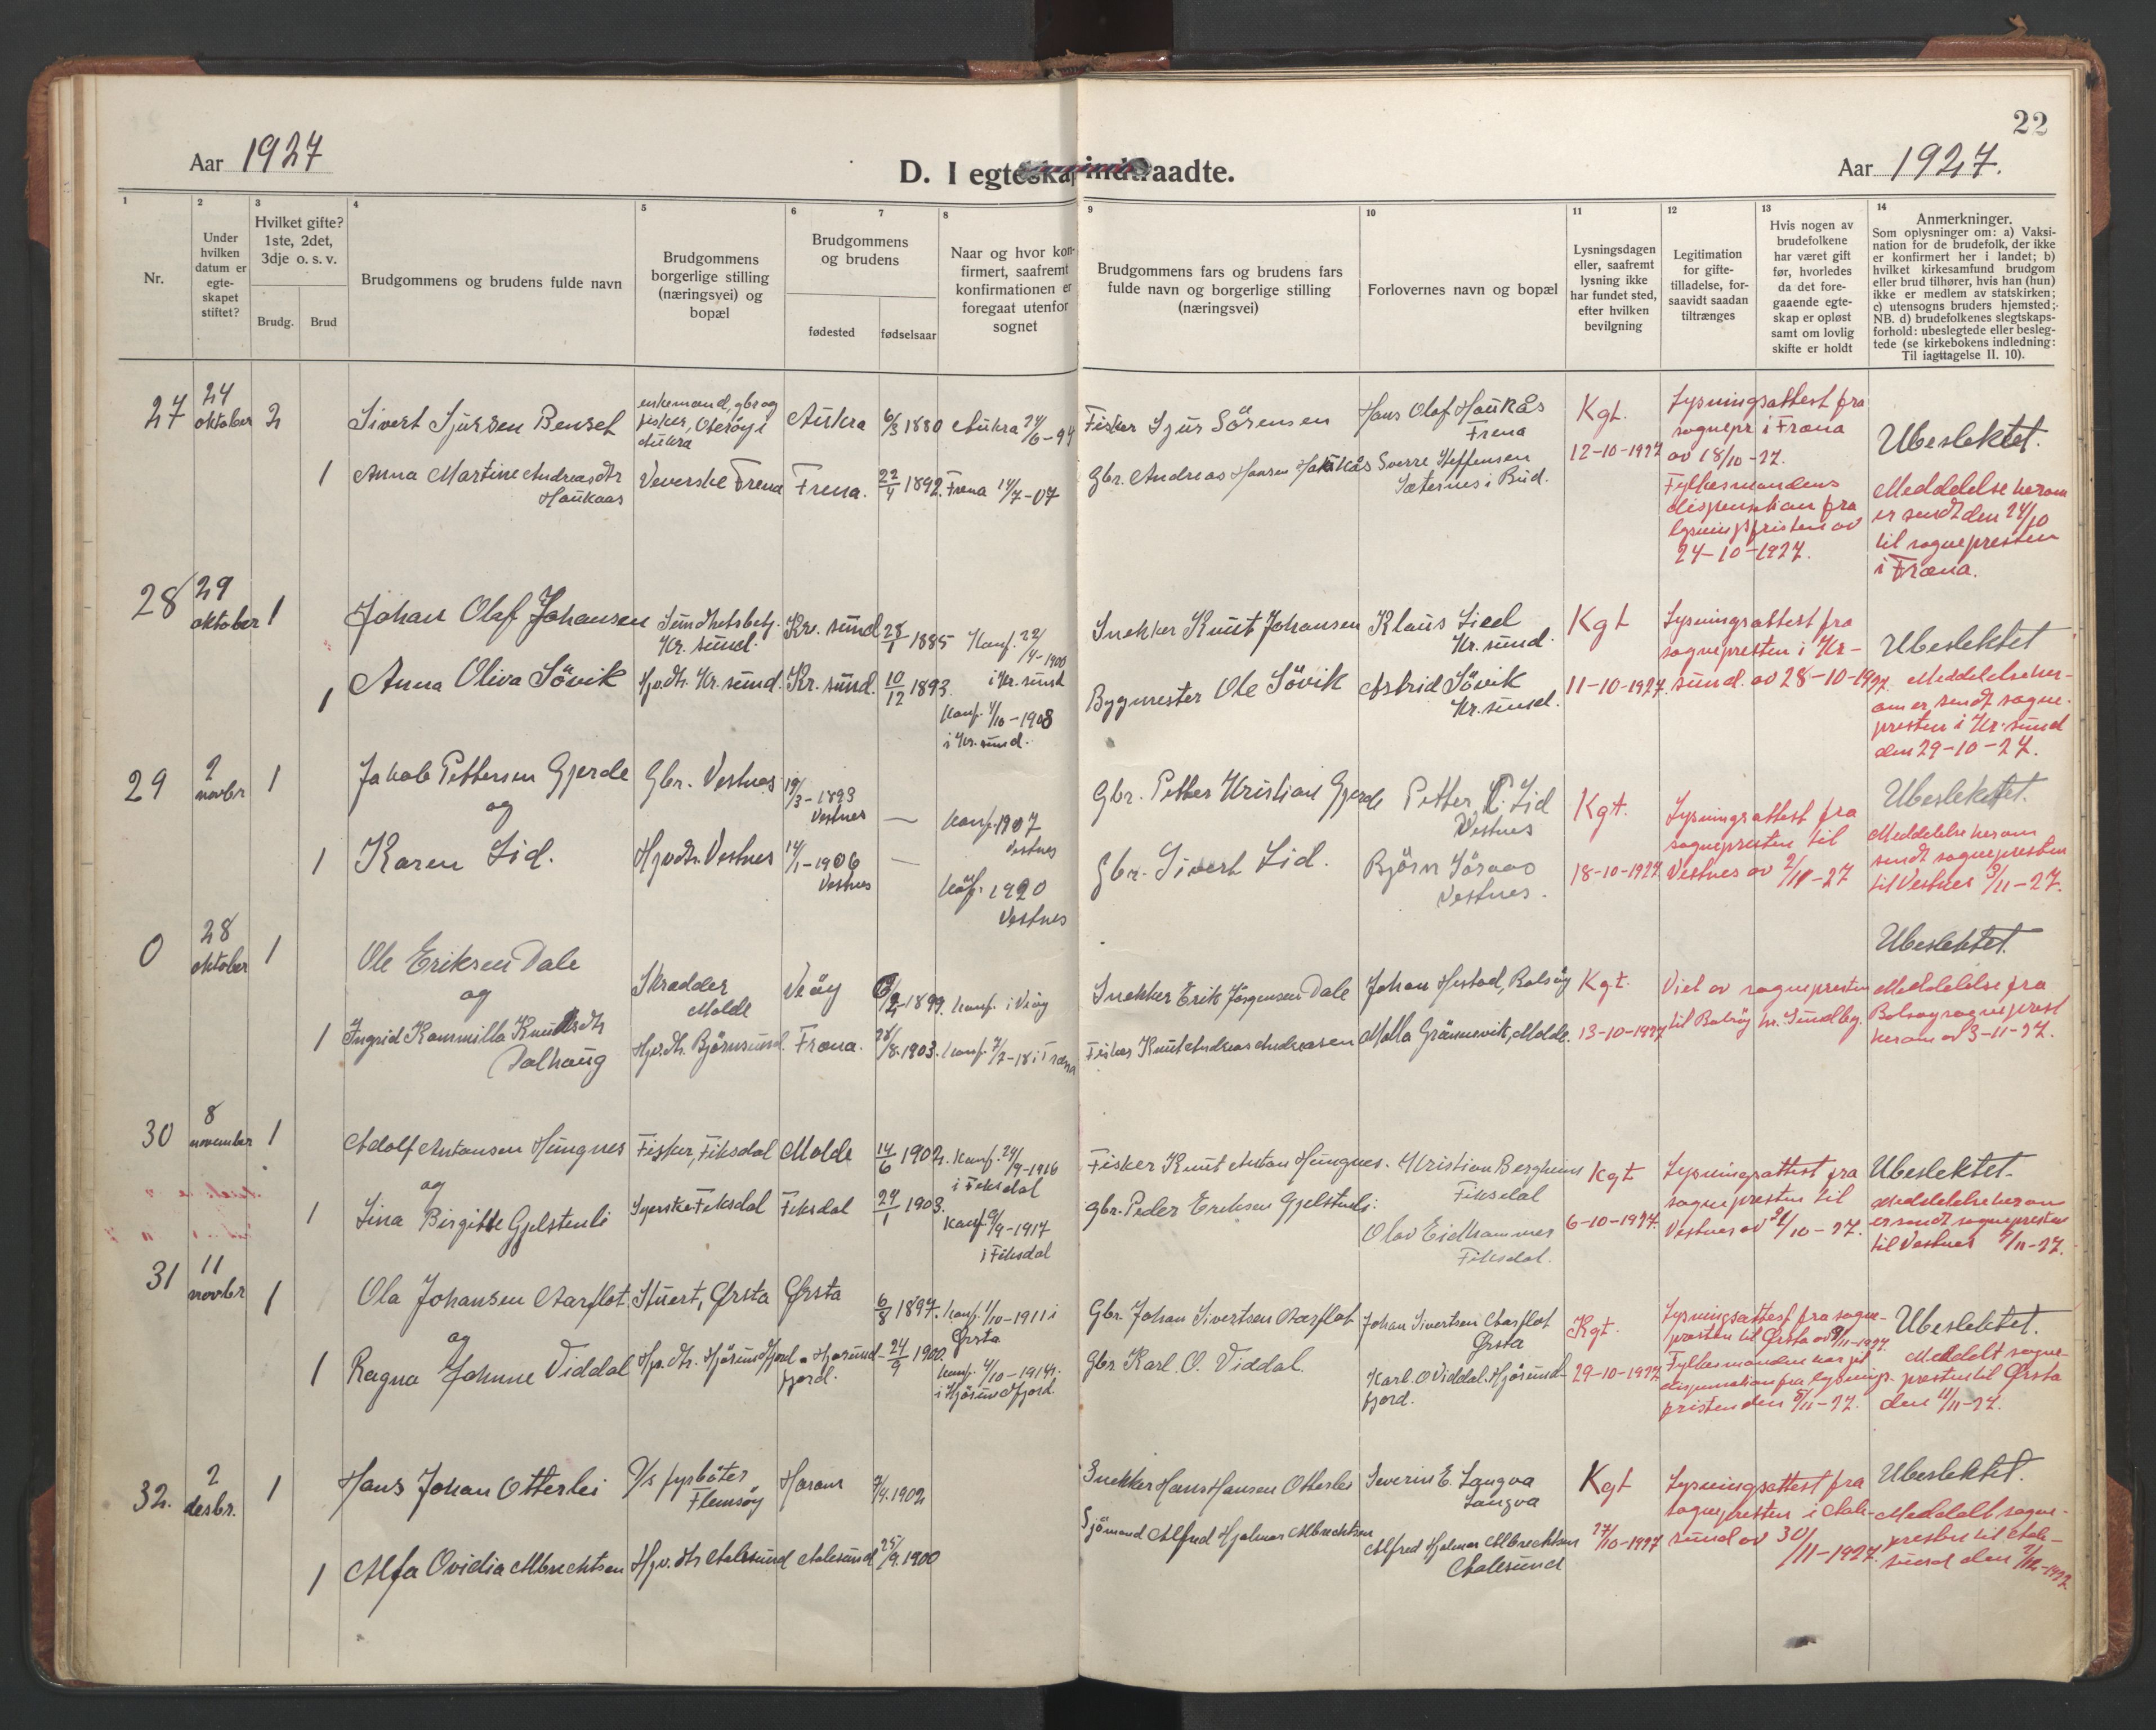 22
Aar 1927
D. I egteskap indtraadte.
Aar 1927.
1
Nr.
2
Under
hvilken
datum er
egte-
skapet
stiftet?
3
Hvilket gifte?
1ste, 2det,
3dje o. s. v.
Brudg.
Brud
4
Brudgommens og brudens fulde navn
5
Brudgommens
borgerlige stilling
(næringsvei) og
bopæl
6
7
Brudgommens
og brudens
fødested
fødselsaar
8
Naar og hvor kon-
firmert, saafremt
konfirmationen er
foregaat utenfor
sognet
9
Brudgommens fars og brudens fars
fulde navn og borgerlige stilling
(næringsvei)
10
Forlovernes navn og bopæl
11
Lysningsdagen
eller, saafremt
lysning ikke
har fundet sted,
efter hvilken
bevilgning
12
Legitimation
for gifte-
tilladelse, for-
saavidt saadan
tiltrænges
13
Hvis nogen av
brudefolkene
har været gift
før, hvorledes
da det fore-
gaaende egte-
skap er opløst
samt om lovlig
skifte er holdt
14
Anmerkninger.
Som oplysninger om: a) Vaksi-
nation for de brudefolk, der ikke
er konfirmert her i landet; b)
hvilket kirkesamfund brudgom
eller brud tilhører, hvis han (hun)
ikke er medlem av statskirken;
c) utensogns bruders hjemsted;
NB. d) brudefolkenes slegtskaps-
forhold: ubeslegtede eller besleg-
tede (se kirkebokens indledning:
Til iagttagelse II. 10).
27
24
oktober
2
Sivert Sjursen Benset
enkemand, gbr og
fisker, Oterøy i
Aukra
Aukra
6/3 1880
Aukra 24/6-94
Fisker Sjur Sörensen
Hans Olaf Haukås
Frena
Kgt.
12-10-1927
Lysningsattest fra
sognepr i Fræna
av 18/10-27.
Fylkesmandens
dispensation fra
lysningsfristen av
24-10-1927.
Ubeslektet.
Meddelelse herom
er sendt den 24/10
til sognepresten
i Fræna.
1
Anna Martine Andreasdtr
Haukaas
Veverske Frena
Frena.
22/4 1892.
Frena 14/7-07
Gbr. Andreas Hansen Haukås
Sverre Steffensen
Sæternes i Bud.
28
29
oktober
1
Johan Olaf Johansen
Sundhetsbetj.
Kr. sund.
Kr. sund
28/1 1885
Konf. 22/4-1900
i Kr. sund
Snekker Knut Johansen
Klaus Lied
Kr. sund.
Kgt
11-10-1927.
Lysningsattest fra
sognepresten i Kr-
sund. av 28-10-1927.
Ubeslektet
Meddelelse her-
om er sendt sogne-
presten i Kr. sund
den 29-10-27.
1
Anna Oliva Sövik
Hjv. dtr. Kr. sund.
Kr. sund.
10/12 1893.
Konf. 4/10-1908
i Kr. sund.
Bygmester Ole Sövik
Astrid Sövik
Kr. sund.
29
2
novbr
1
Jakob Pettersen Gjerde
og
Gbr. Vestnes
19/3-1893
Vestnes
—
Konf. 1907
Vestnes
Gbr. Petter Kristian Gjerde
Petter P. Lid
Vestnes
Kgt.
18-10-1927
Lysningsattest fra
sognepresten til
Vestnes av 2/11-27
Ubeslektet.
Meddelelse herom
sendt sognepresten
til Vestnes 3/11-27.
1
Karen Lid.
Hjvdtr. Vestnes
14/1-1906
Vestnes
—
Konf. 1920
Vestnes
Gbr. Sivert Lid.
Björn
Vestnes.
0
28
oktober
1
Ole Eriksen Dale
og
Skrædder
Molde
Veöy
1899.
Konf. i Veöy
Snekker Erik Jörgensen Dale
Johan Hestad, Bolsöy
Kgt.
13-10-1927
Viet av sognepresten
til Bolsöy hr. Sundby.
Ubeslektet.
Meddelelse fra
Bolsøy sogneprest
herom av 3-11-27.
1
Ingrid Kammilla Knutsdtr
Dalhaug
Hjv. dtr. Björnsund.
Fræna.
28/8. 1903.
Konf. 7/7-18 i Fræna
Fisker Knut Andreas Andreasen
Malla Grännevik, Molde.
30
8
november
1
Adolf Antonsen Hungnes
og
Fisker, Fiksdal
Molde
14/6 1902.
Konf. 24/9-1916
i Fiksdal
Fisker Knut Anton Hungnes.
Kristian Bergheim
Fiksdal
Kgt
6-10-1927.
Lysningsattest fra
sognepresten til
Vestnes av 21/10-27.
Ubeslektet.
Meddelelse herom
er sendt sognepresten
til Vestnes 9/11-27.
1
Lina Birgitte Gjelstenli
Syerske Fiksdal
Fiksdal
29/1 1903.
Konf. 9/9-1917
i Fiksdal
gbr. Peder Eriksen Gjelstenli.
Olav Eidhammer
Fiksdal.
31
11
novbr
1
Ola Johansen Aarflot
og
Stuert, Ørsta
Ørsta
6/8 1897.
Konf. 1/10-1911 i
Ørsta
Gbr. Johan Sivertsen Aarflot
Johan Sivertsen Aarflot
Ørsta
Kgt.
29-10-1927
Lysningsattest fra sogne-
presten til Ørsta av 9/11-1927.
Fylkesmanden har git
dispensation fra lysnings-
fristen den 5/11-27.
Ubeslektet.
Meddelt sogne-
presten til Ørsta
den 11/11-27.
1
Ragna Johnne Viddal
Hjv. dtr. Hjörundfjord
Hjörund-
fjord.
24/9 1900.
Konf. 4/10-1914.
i Hjörundfjord
Gbr Karl. O. Viddal.
Karl. O Viddal. Hjörund-
fjord.
32.
2
desbr.
1
Hans Johan Otterlei
fyrböter
Flemsöy
Haram
7/4. 1902
Snekker Hans Hansen Otterlei
Severin E. Langva
Langva
Kgt
27/10-1927
Lysningsattest fra
sognepresten i Aale-
sund av 30/11-1927.
Ubeslektet.
Meddelt sogne-
presten til Aale-
sund den 2/12-1927
1
Alfa Ovidia Albrechtsen
Hjv. dtr Aalesund
Aalesund
25/9. 1900
Sjömand Alfred Hjalmar Albrechtsen
Alfred Hjalmar Albrechtsen
Aalesund